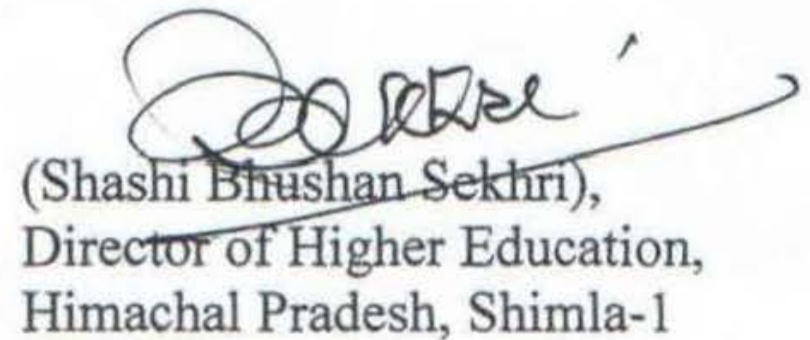 (Shashi Bhushan Sekhri),
Director of Higher Education,
Himachal Pradesh, Shimla-1